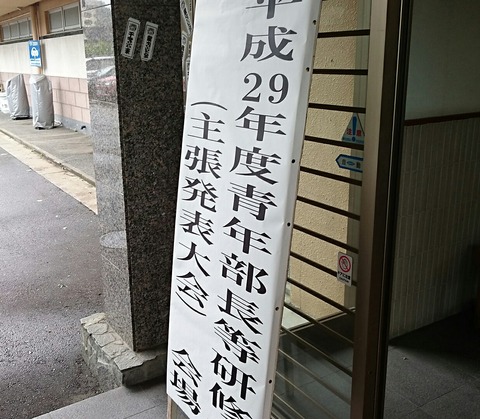 平成29年度青年部長等研修
(主張発表大会) 会場